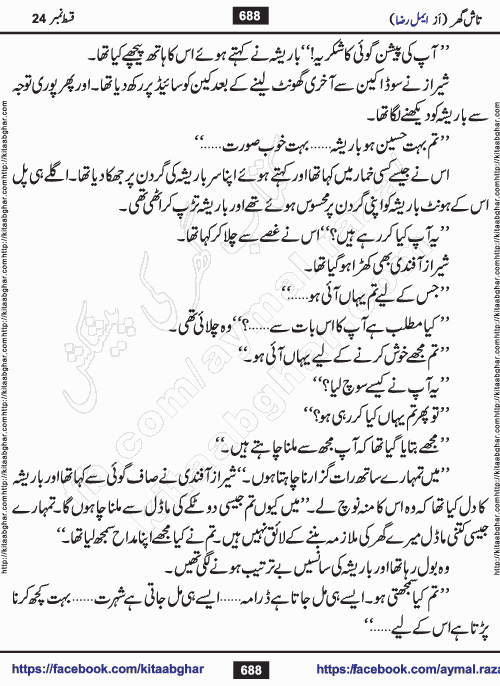 تاش گھر (از ایمل رضا)
688
قسط نمبر 24
’’آپ کی پیشن گوئی کا شکریہ!‘‘ باریشہ نے کہتے ہوئے اس کا ہاتھ پیچھے کیا تھا۔
شیراز نے سوڈا کین سے آخری گھونٹ لینے کے بعد کین کو سائیڈ پر رکھ دیا تھا۔ اور پھر پوری توجہ
سے باریشہ کو دیکھنے لگا تھا۔
’’تم بہت حسین ہو باریشہ...... بہت خوب صورت......‘‘
اس نے جیسے کسی خمار میں کہا تھا اور کہتے ہوئے اپنا سر باریشہ کی گردن پر جھکا دیا تھا۔ اگلے ہی پل
اس کے ہونٹ باریشہ کو اپنی گردن پر محسوس ہوئے تھے اور باریشہ تڑپ کر اٹھی تھی۔
’’یہ آپ کیا کر رہے ہیں؟‘‘ اس نے غصے سے چلا کر کہا تھا۔
شیراز آفندی بھی کھڑا ہو گیا تھا۔
’’جس کے لیے تم یہاں آئی ہو......‘‘
’’کیا مطلب ہے آپ کا اس بات سے......؟‘‘ وہ چلائی تھی۔
’’تم مجھے خوش کرنے کے لیے یہاں آئی ہو۔‘‘
’’یہ آپ نے کیسے سوچ لیا؟‘‘
’’تو پھر تم یہاں کیا کر رہی ہو؟‘‘
’’مجھے بتایا گیا تھا کہ آپ مجھ سے ملنا چاہتے ہیں۔‘‘
’’میں تمہارے ساتھ رات گزارنا چاہتا ہوں۔‘‘ شیراز آفندی نے صاف گوئی سے کہا تھا اور باریشہ
کا دل کیا تھا کہ وہ اس کا منہ نوچ لے۔ ’’میں کیوں تم جیسی دو ٹکے کی ماڈل سے ملنا چاہوں گا۔ تمہارے
جیسی کتنی ماڈل میرے گھر کی ملازمہ بننے کے لائق نہیں ہیں۔ تم نے کیا مجھے اپنا مداح سمجھ لیا تھا۔‘‘
وہ بول رہا تھا اور باریشہ کی سانسیں بے ترتیب ہونے لگی تھیں۔
’’تم کیا سمجھتی ہو۔ ایسے ہی مل جاتا ہے ڈرامہ...... ایسے ہی مل جاتی ہے شہرت...... بہت کچھ کرنا
پڑتا ہے اس کے لیے......‘‘
https://facebook.com/kitaabghar
688
https://facebook.com/aymal.raza
http://kitaabghar.com
http://kitaabghar.com
fb.com/aymal.raza
kitaabghar.com
کتاب گھر کی پیشکش